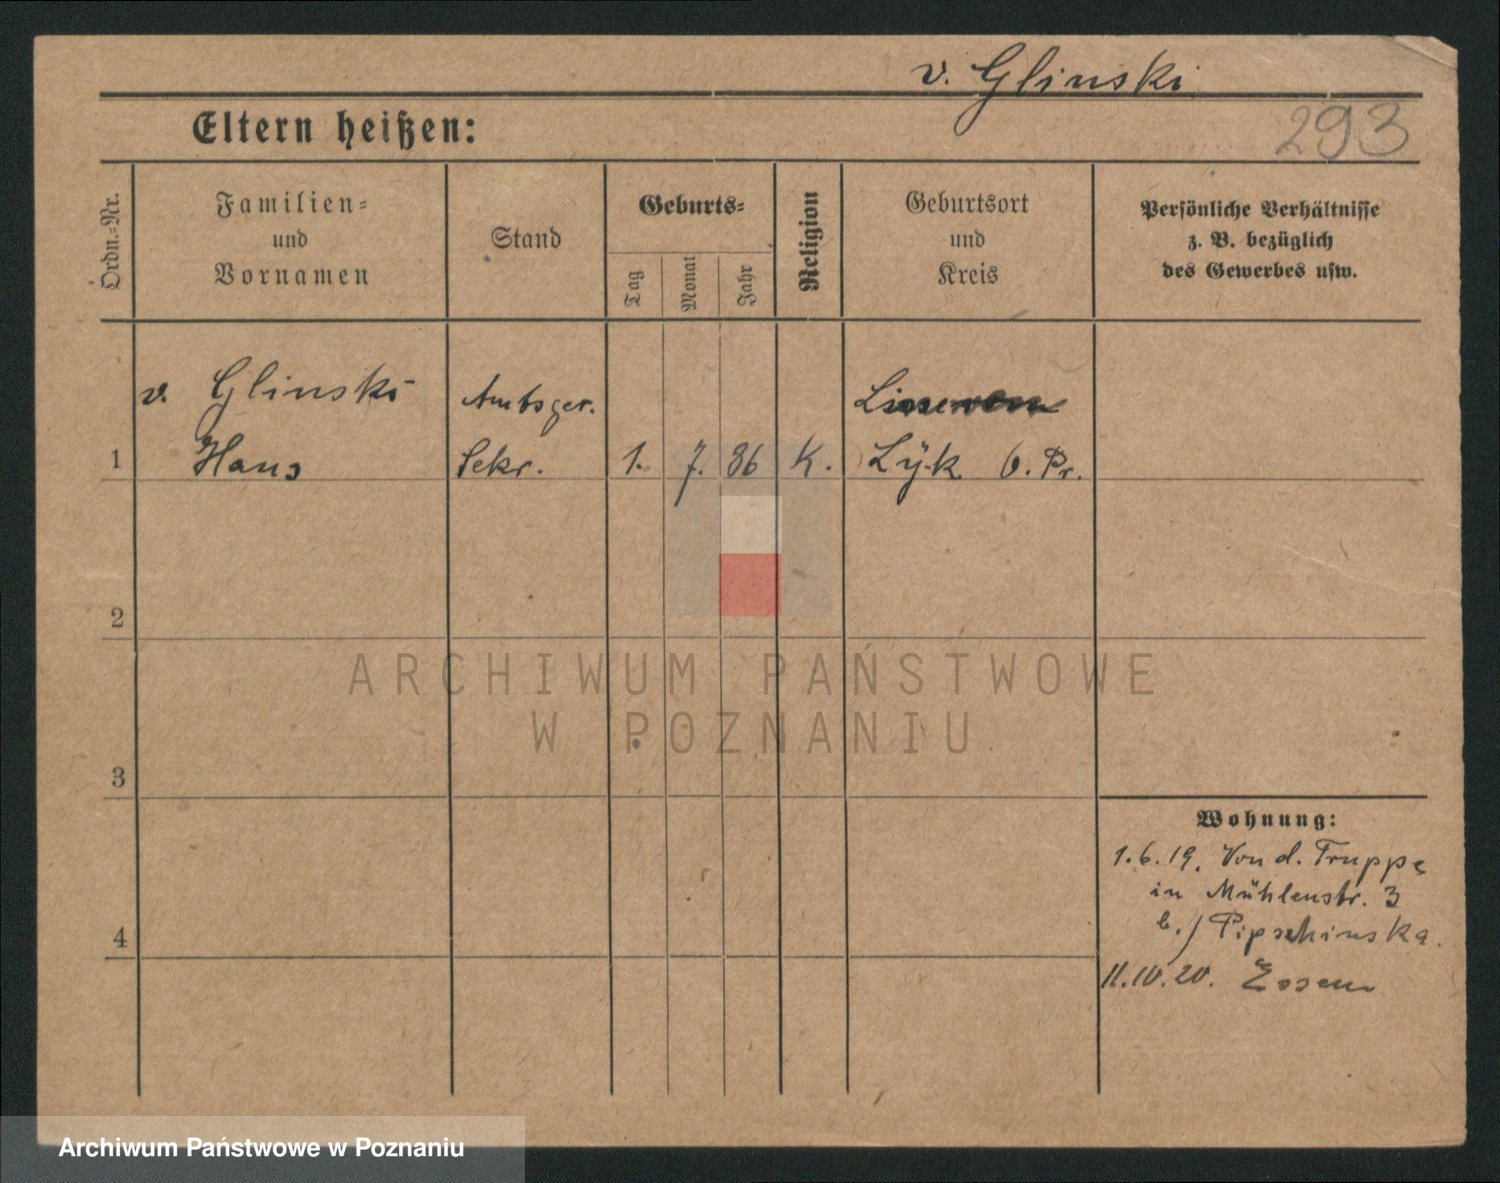 v. Glinski
Eltern heißen:
293
Ordn.-Nr.
Familien-
und
Vornamen
Stand
Geburts-
Tag
Monat
Jahr
Religion
Geburtsort
und
Kreis
Persönliche Verhältnisse
z. B. bezüglich
des Gewerbes usw.
v. Glinski
Amtsger.
1
Hans
Sekr.
1.
7.
86
K.
Lyk O. Pr.
2
3
4
Wohnung:
1.6.19. Von d. Truppe
in Mühlenstr. 3
b./
11.10.20. Essen
ARCHIWUM PAŃSTWOWE
W POZNANIU
Archiwum Państwowe w Poznaniu